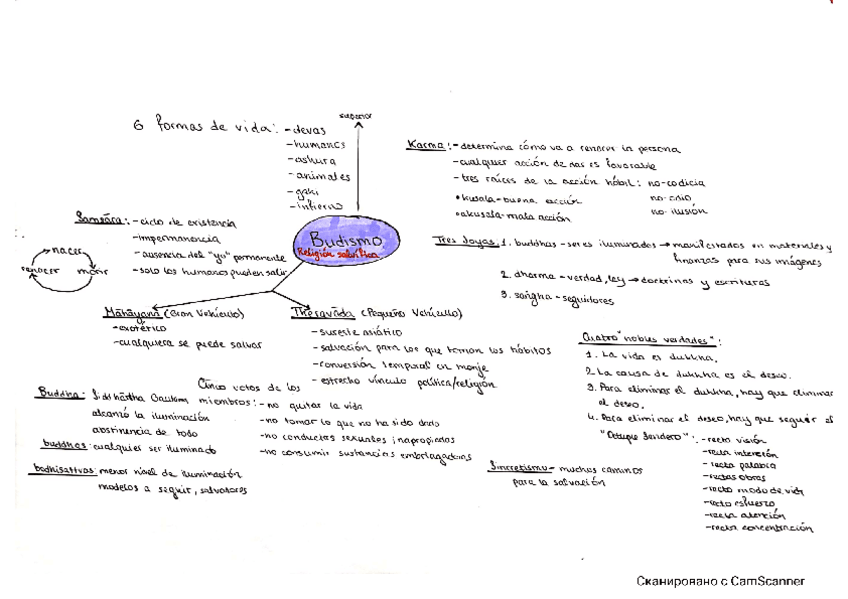 superior
6 formas de vida: - devas
- humanos
- ashura
- animales
- gaki
- infierno
Budismo
Religión salvífica
Karma: - determina cómo va a renacer la persona
- cualquier acción de das es favorable
- tres raíces de la acción hábil: no-codicia
• kusala - buena acción no-odio
• akusala - mala acción no-ilusión
Samsāra: - ciclo de existencia
- impermanencia
- ausencia del "yo" permanente
- solo los humanos pueden salir
nacer
renacer morir
Tres Joyas: 1. buddhas - seres iluminados → manifestados en materiales y
finanzas para sus imágenes
2. dharma - verdad, ley → doctrinas y escrituras
3. sangha - seguidores
Māhāyana (Gran Vehículo)
- exotérico
- cualquiera se puede salvar
Theravāda (Pequeño Vehículo)
- sureste asiático
- salvación para los que toman los hábitos
- conversión temporal en monje
- estrecho vínculo política/religión
Cuatro "nobles verdades":
1. La vida es dukkha.
2. La causa de dukkha es el deseo.
3. Para eliminar el dukkha, hay que eliminar
el deseo.
4. Para eliminar el deseo, hay que seguir el
"Octuple Sendero": - recta visión
- recta intención
- recta palabra
- rectas obras
- recto modo de vida
- recto esfuerzo
- recta atención
- recta concentración
Buddha: Siddhārtha Gautama
alcanzó la iluminación
abstinencia de todo
buddhas: cualquier ser iluminado
bodhisattvas: menor nivel de iluminación
modelos a seguir, salvadores
Cinco votos de los
miembros: - no quitar la vida
- no tomar lo que no ha sido dado
- no conductas sexuales inapropiadas
- no consumir sustancias embriagadoras
Sincretismo - muchos caminos
para la salvación
Сканировано с CamScanner